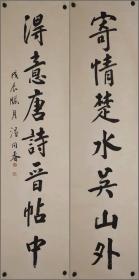 寄情楚水吴山外
得意唐詩晋帖中
戊辰臘月
同春